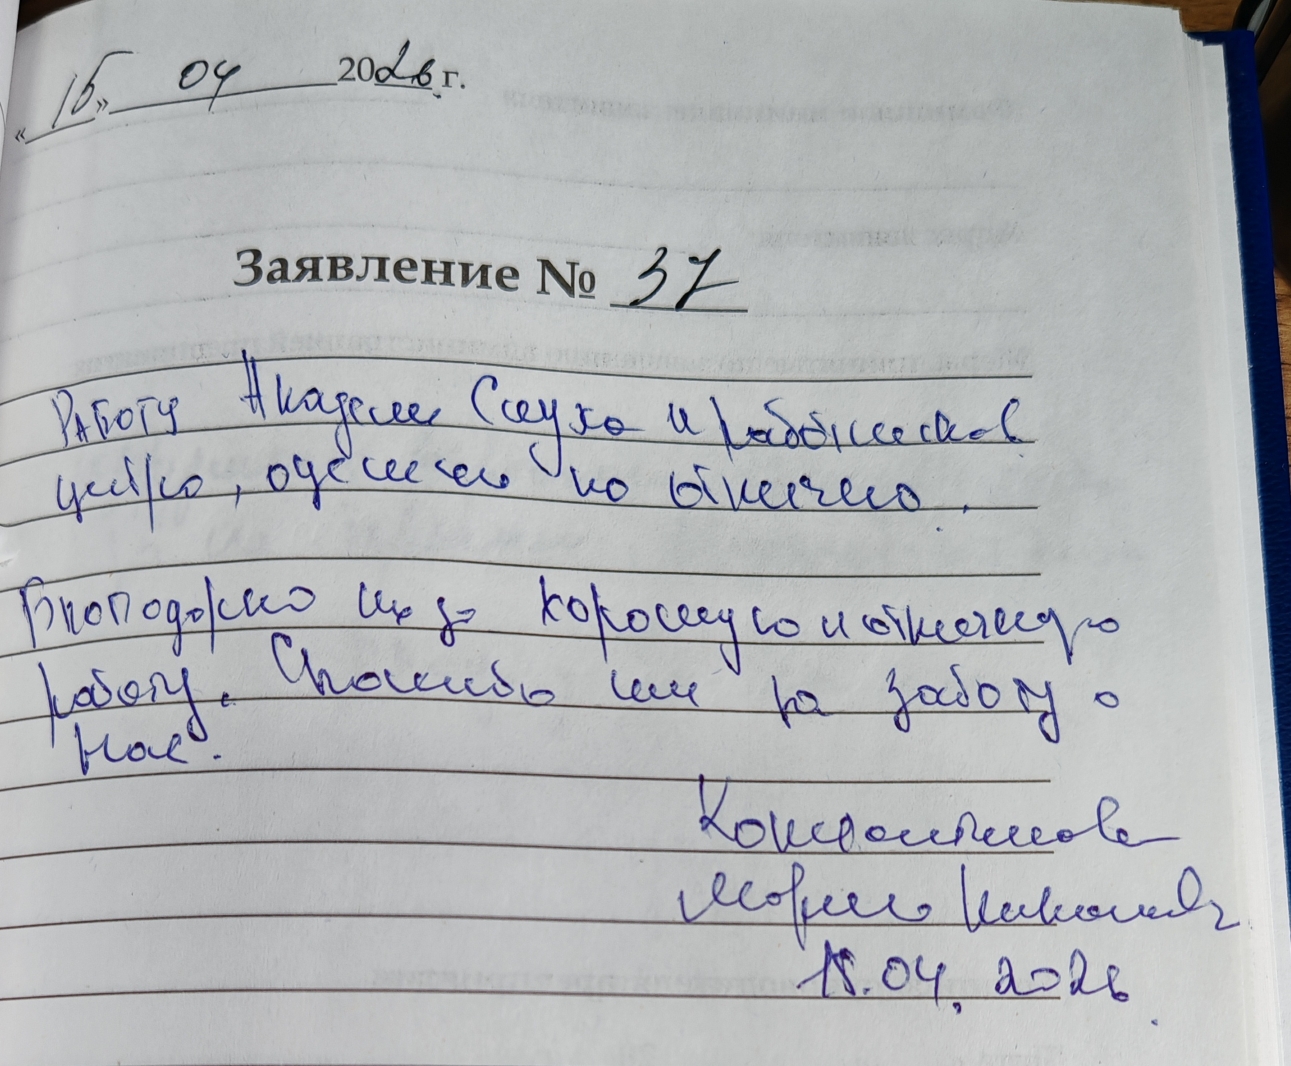 «15» 04 2026 г.
Заявление № 37
Работу Академии Слуха и работников
центра, оцениваю на отлично.
Благодарю их за хорошую и отличную
работу. Спасибо им за заботу о
нас.
Константинова
Марина Николаевна
15.04.2026